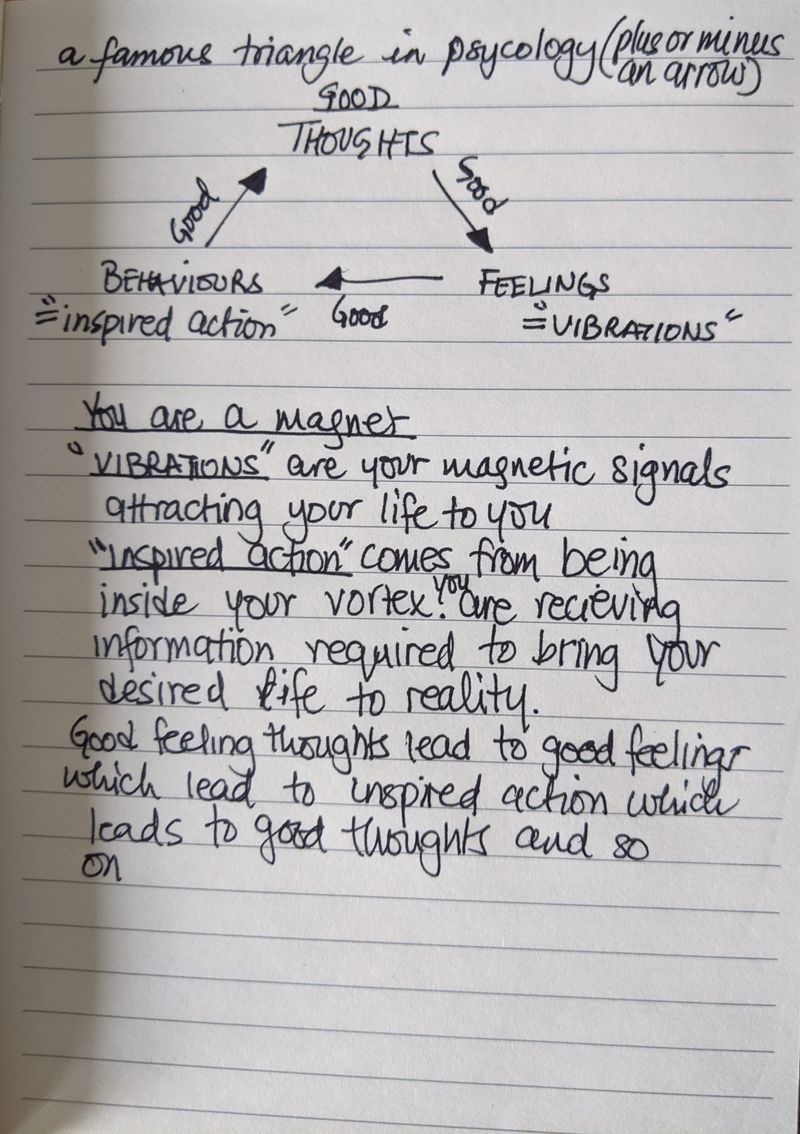 a famous triangle in psycology (plus or minus
an arrow)
GOOD
THOUGHTS
Good
Good
BEHAVIOURS
FEELINGS
Good
="inspired action"
="VIBRATIONS"
You are a magnet
"VIBRATIONS" are your magnetic signals
attracting your life to you
"Inspired action" comes from being
inside your vortex! you are recieving
information required to bring your
desired life to reality.
Good feeling thoughts lead to good feelings
which lead to inspired action which
leads to good thoughts and so
on